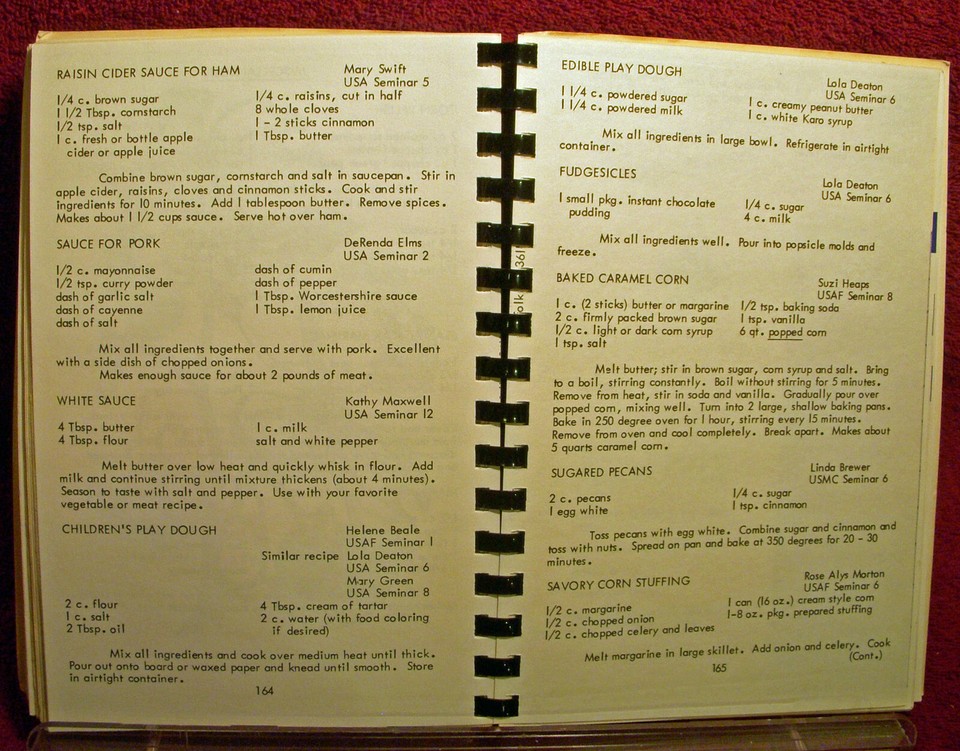 RAISIN CIDER SAUCE FOR HAM
Mary Swift
USA Seminar 5
1/4 c. brown sugar
1 1/2 Tbsp. cornstarch
1/2 tsp. salt
1 c. fresh or bottle apple
cider or apple juice
1/4 c. raisins, cut in half
8 whole cloves
1 - 2 sticks cinnamon
1 Tbsp. butter
Combine brown sugar, cornstarch and salt in saucepan. Stir in
apple cider, raisins, cloves and cinnamon sticks. Cook and stir
ingredients for 10 minutes. Add 1 tablespoon butter. Remove spices.
Makes about 1 1/2 cups sauce. Serve hot over ham.
SAUCE FOR PORK
DeRenda Elms
USA Seminar 2
1/2 c. mayonnaise
1/2 tsp. curry powder
dash of garlic salt
dash of cayenne
dash of salt
dash of cumin
dash of pepper
1 Tbsp. Worcestershire sauce
1 Tbsp. lemon juice
Mix all ingredients together and serve with pork. Excellent
with a side dish of chopped onions.
Makes enough sauce for about 2 pounds of meat.
WHITE SAUCE
Kathy Maxwell
USA Seminar 12
4 Tbsp. butter
4 Tbsp. flour
1 c. milk
salt and white pepper
Melt butter over low heat and quickly whisk in flour. Add
milk and continue stirring until mixture thickens (about 4 minutes).
Season to taste with salt and pepper. Use with your favorite
vegetable or meat recipe.
CHILDREN'S PLAY DOUGH
Helene Beale
USAF Seminar 1
Similar recipe Lola Deaton
USA Seminar 6
Mary Green
USA Seminar 8
2 c. flour
1 c. salt
2 Tbsp. oil
4 Tbsp. cream of tartar
2 c. water (with food coloring
if desired)
Mix all ingredients and cook over medium heat until thick.
Pour out onto board or waxed paper and knead until smooth. Store
in airtight container.
164
EDIBLE PLAY DOUGH
Lola Deaton
USA Seminar 6
1 1/4 c. powdered sugar
1 1/4 c. powdered milk
1 c. creamy peanut butter
1 c. white Karo syrup
Mix all ingredients in large bowl. Refrigerate in airtight
container.
FUDGESICLES
Lola Deaton
USA Seminar 6
1 small pkg. instant chocolate
pudding
1/4 c. sugar
4 c. milk
Mix all ingredients well. Pour into popsicle molds and
freeze.
BAKED CARAMEL CORN
Suzi Heaps
USAF Seminar 8
1 c. (2 sticks) butter or margarine
2 c. firmly packed brown sugar
1/2 c. light or dark corn syrup
1 tsp. salt
1/2 tsp. baking soda
1 tsp. vanilla
6 qt. popped corn
Melt butter; stir in brown sugar, corn syrup and salt. Bring
to a boil, stirring constantly. Boil without stirring for 5 minutes.
Remove from heat, stir in soda and vanilla. Gradually pour over
popped corn, mixing well. Turn into 2 large, shallow baking pans.
Bake in 250 degree oven for 1 hour, stirring every 15 minutes.
Remove from oven and cool completely. Break apart. Makes about
5 quarts caramel corn.
SUGARED PECANS
Linda Brewer
USMC Seminar 6
2 c. pecans
1 egg white
1/4 c. sugar
1 tsp. cinnamon
Toss pecans with egg white. Combine sugar and cinnamon and
toss with nuts. Spread on pan and bake at 350 degrees for 20 - 30
minutes.
SAVORY CORN STUFFING
Rose Alys Morton
USAF Seminar 6
1/2 c. margarine
1/2 c. chopped onion
1/2 c. chopped celery and leaves
1 can (16 oz.) cream style corn
1-8 oz. pkg. prepared stuffing
Melt margarine in large skillet. Add onion and celery. Cook
(Cont.)
165